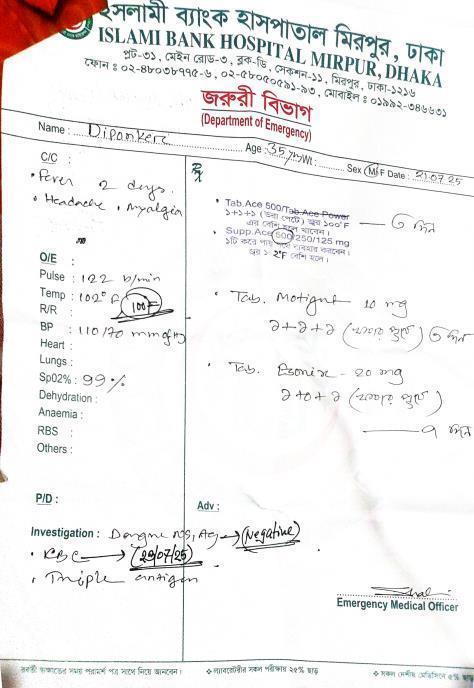 ইসলামী ব্যাংক হাসপাতাল মিরপুর, ঢাকা
ISLAMI BANK HOSPITAL MIRPUR, DHAKA
প্লট-৩১, মেইন রোড-৩, ব্লক-ডি, সেকশন-১১, মিরপুর, ঢাকা-১২১৬
ফোন : ০২-৪৮০৩৮৭৫-৬, ০২-৫৮০৫০৫৯১-৯৩, মোবাইল : ০১৯৯২-৩৪৬৬৩১
জরুরী বিভাগ
(Department of Emergency)
Name : Dipanker Age : 35 yrs Wt : Sex M/F Date : 21.07.25
C/C :
• Fever 2 days.
• Headache, Myalgia
O/E :
Pulse : 122 b/min
Temp : 102° F
R/R : 100 F
BP : 110/70 mmofHg
Heart :
Lungs :
Sp02% : 99%
Dehydration :
Anaemia :
RBS :
Others :
P/D :
Investigation : Dengue NS1 Ag → (Negative)
• CBC → (29/07/25)
• Triple antigen
Rx
• Tab. Ace 500/Tab. Ace Power
১+১+১ (ভরা পেটে) জ্বর ১০০°F
এর বেশি হলে খাবেন। — ৩ দিন
• Supp. Ace 500/250/125 mg
১টি করে পায়ু পথে ব্যবহার করবেন।
জ্বর ১০২°F বেশি হলে।
• Tab. Motigut 10 mg
১+১+১ (খাবার পূর্বে) ৩ দিন
• Tab. Esonix - 20 mg
১+০+১ (খাবার পূর্বে)
— ৭ দিন
Adv :
Emergency Medical Officer
পরবর্তী সাক্ষাতের সময় পরামর্শ পত্র সাথে নিয়ে আসবেন। ❖ ল্যাবরেটরীর সকল পরীক্ষায় ২৫% ছাড় ❖ সকল দেশীয় মেডিসিনে ৫% ছাড়